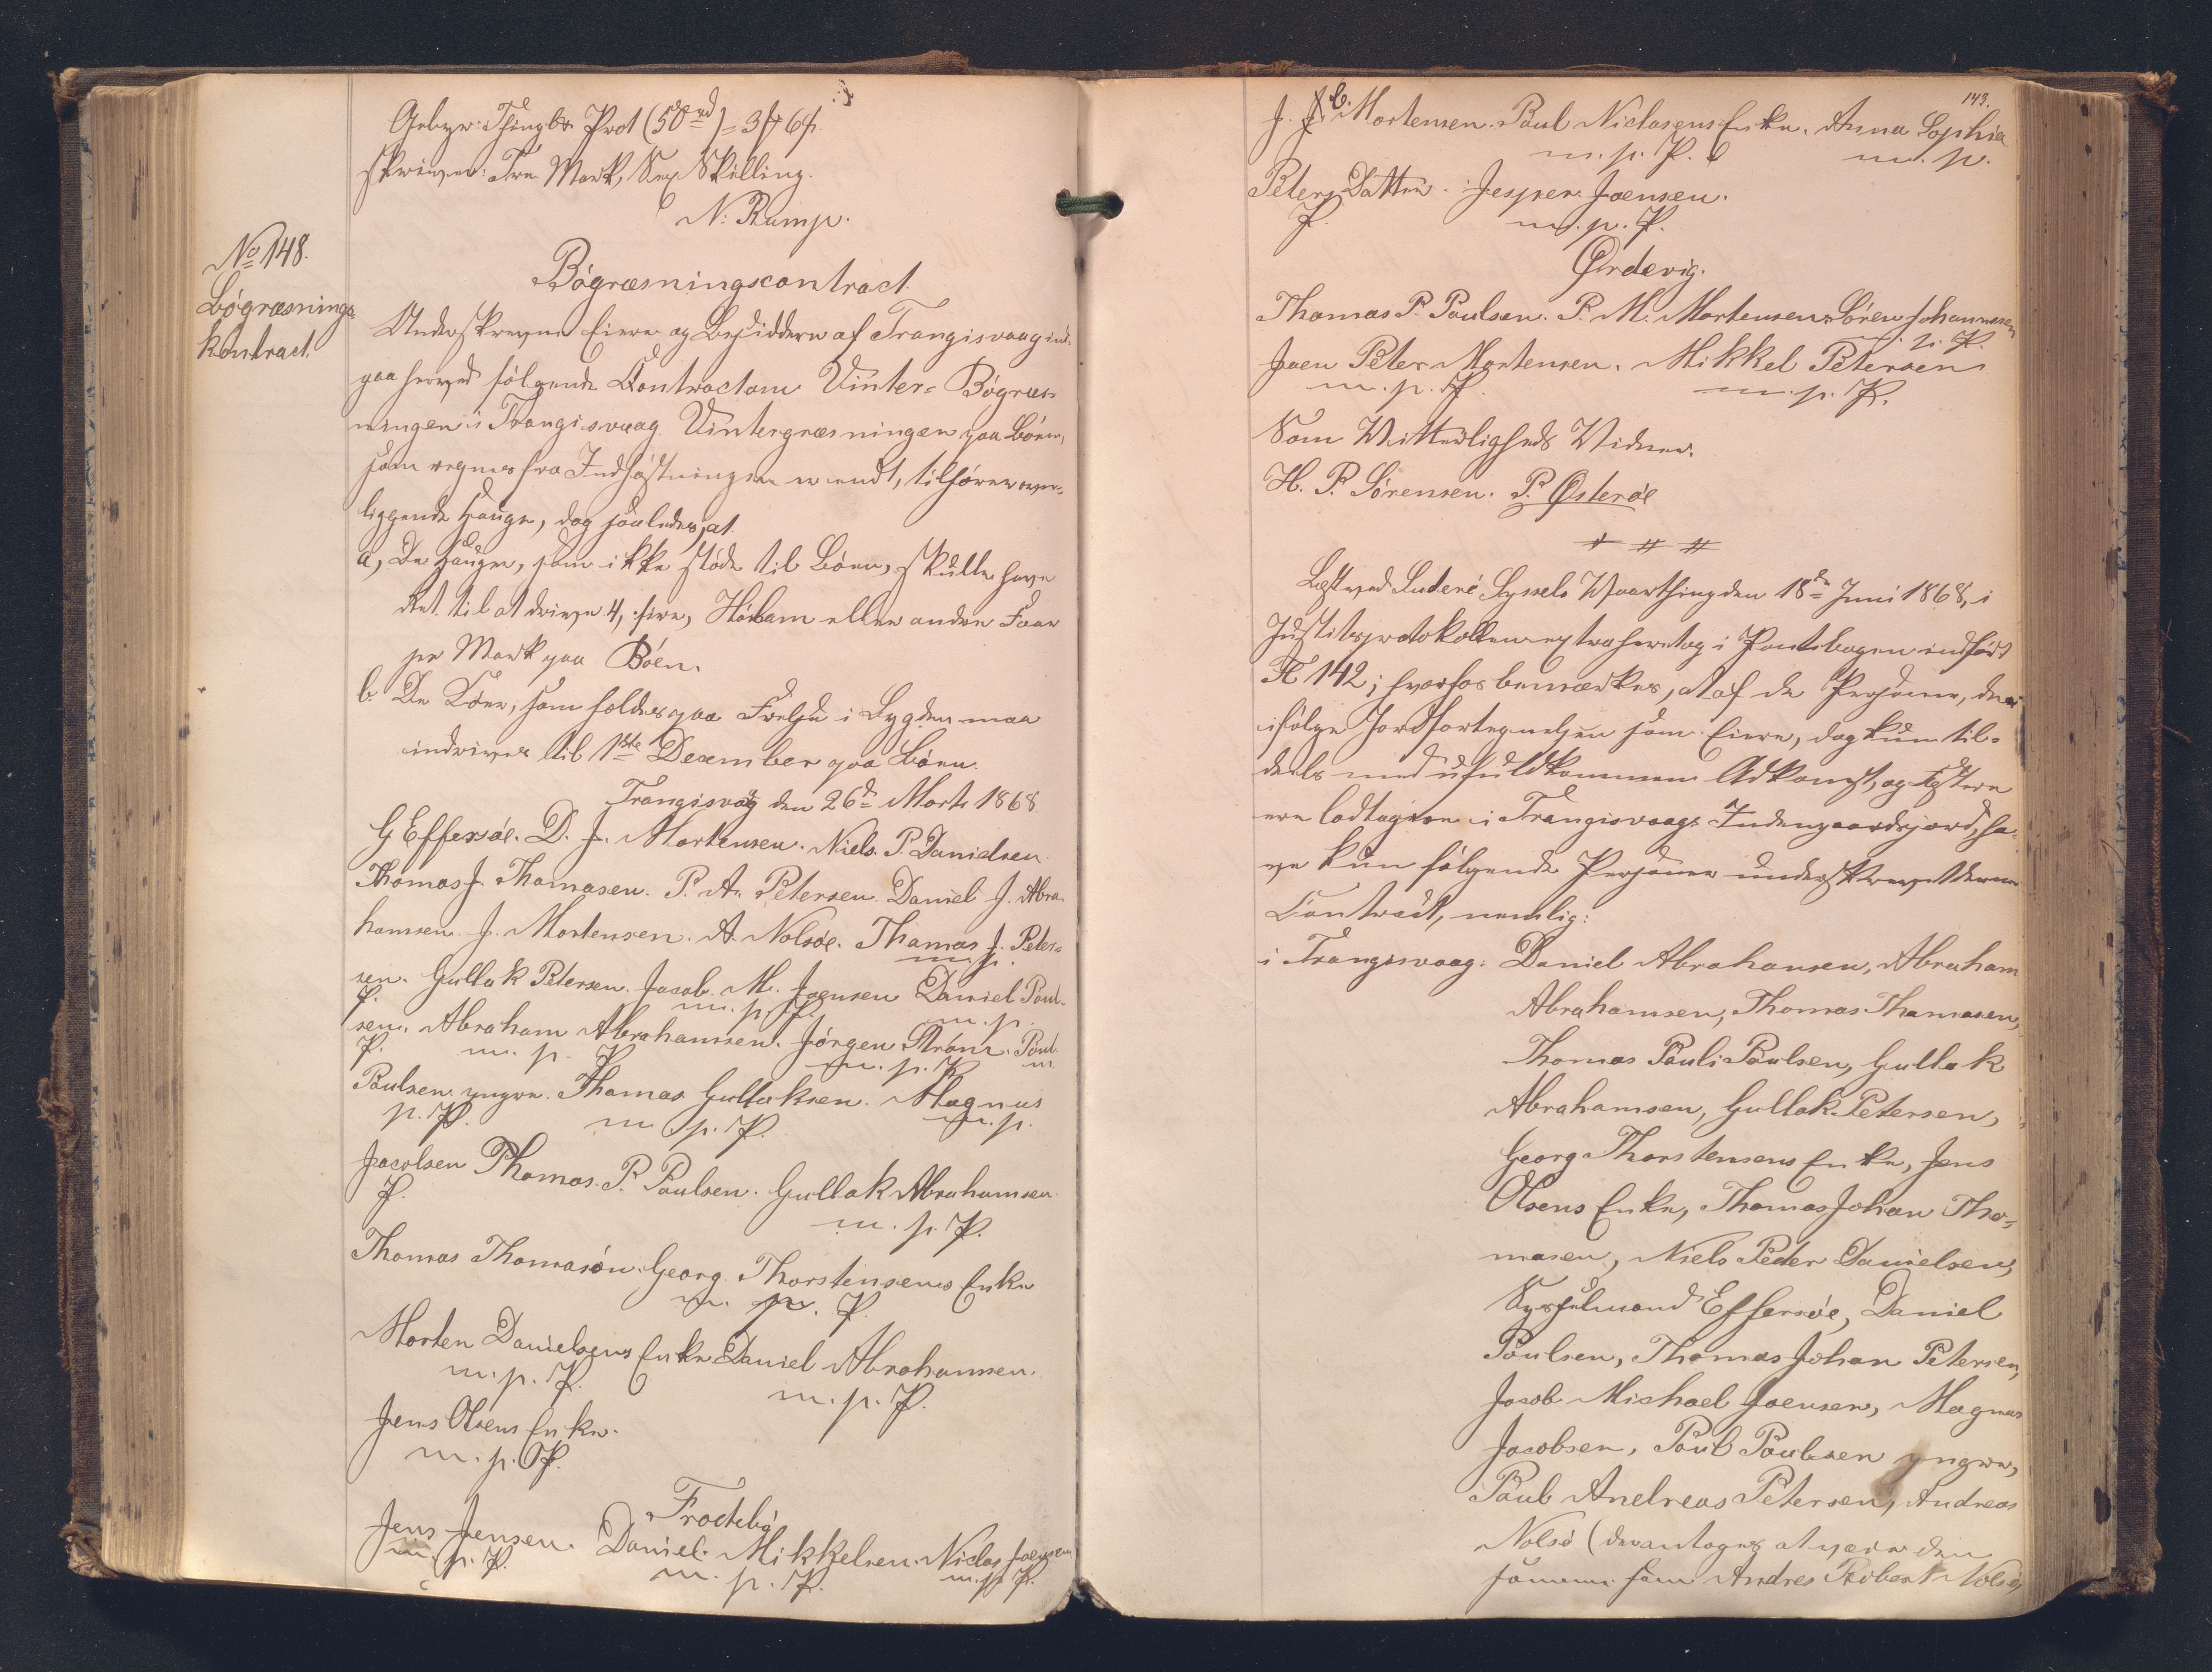 Gebyr: Thingl. & Prot (50 rd) = 3 ℳ 6 ß.
skriver: Tre Mark, Sex Skilling.
N. Rump.
No 148.
Bøgræsnings-
kontract.
Bøgræsningscontract.
Underskrevne Eiere og Besiddere af Trangisvaag ind-
gaa herved følgende Contract om Vinter-Bøgræs-
ningen i Trangisvaag. Vintergræsningen paa Bøen,
som regnes fra Indhøstningen er endt, tilhører over-
liggende Hauge, dog saaledes, at
a, De Hauger, som ikke støde til Bøen, skulle have
Ret til at drive 4, fire, Hølam eller andre Faar
pr Mark paa Bøen.
b. De Køer, som holdes paa Frelse i Bygden maa
indrives til 1ste December paa Bøen.
Trangisvåg den 26de Marts 1868.
G Effersøe. D. J. Mortensen. Niels. P. Danielsen.
Thomas J. Thomasen. P. A. Petersen. Daniel J. Abra-
hamsen. J. Mortensen. A. Nolsøe. Thomas J. Peter-
m. p.
sen. Gullak Petersen. Jacob. M. Joensen Daniel Poul-
P. m. p. P. m. p.
sen. Abraham Abrahamsen. Jørgen Strøm. Poul
P. m. p. P. m. p. P. m
Poulsen yngre. Thomas Gullaksen. Magnus
p. P. m. p. P. m. p.
Jacobsen Thomas. P. Poulsen. Gullak Abrahamsen.
P. m. p. P.
Thomas Thomasøn. Georg Thorstensens Enke
m. p. P.
Morten Danielsens Enke Daniel Abrahamsen.
m. p. P. m. p. P.
Jens Olsens Enke.
m. p. P.
Frodebø
Jens Jensen. Daniel. Mikkelsen. Niclas Joensen
m. p. P. m. p. P. m. p. P.
143.
J. C. Mortensen. Poul Niclasens Enke. Anna Sophia
m. p. P. m. p.
Peters Datter. Jesper Joensen.
P. m. p. P.
Ørdevig.
Thomas P. Poulsen. P. M. Mortensen. Søren Johannesen
m. p. P.
Joen Peter Mortensen. Mikkel Petersen
m. p. P. m. p. P.
Som Vitterligheds Vidner.
H. P. Sørensen. P. Østerøe
Læst ved Suderø Syssels Vaarthing den 18de Juni 1868, i
Justitsprotokollen extraheret og i Pantebogen indført
Fol 142; hvorhos bemærkes, at af de Personer, der
ifølge Jordfortegnelsen som Eiere, dog kun til-
deels med ufuldkommen Adkomst, og Fæstere
ere lodtagne i Trangisvaags Indengaardsjord, ha-
ve kun følgende Personer underskrevet denne
Contract, nemlig:
i Trangisvaag: Daniel Abrahamsen, Abraham
Abrahamsen, Thomas Thomasen,
Thomas Pauli Poulsen, Gullak
Abrahamsen, Gullak Petersen,
Georg Thorstensens Enke, Jens
Olsens Enke, Thomas Johan Tho-
masen, Niels Peder Danielsen,
Sysselmand Effersøe, Daniel
Poulsen, Thomas Johan Petersen,
Jacob Michael Joensen, Magnus
Jacobsen, Poul Poulsen yngre,
Poul Andreas Petersen, Andreas
Nolsø (der antages at være den
samme som Andres Robert Nolsø,